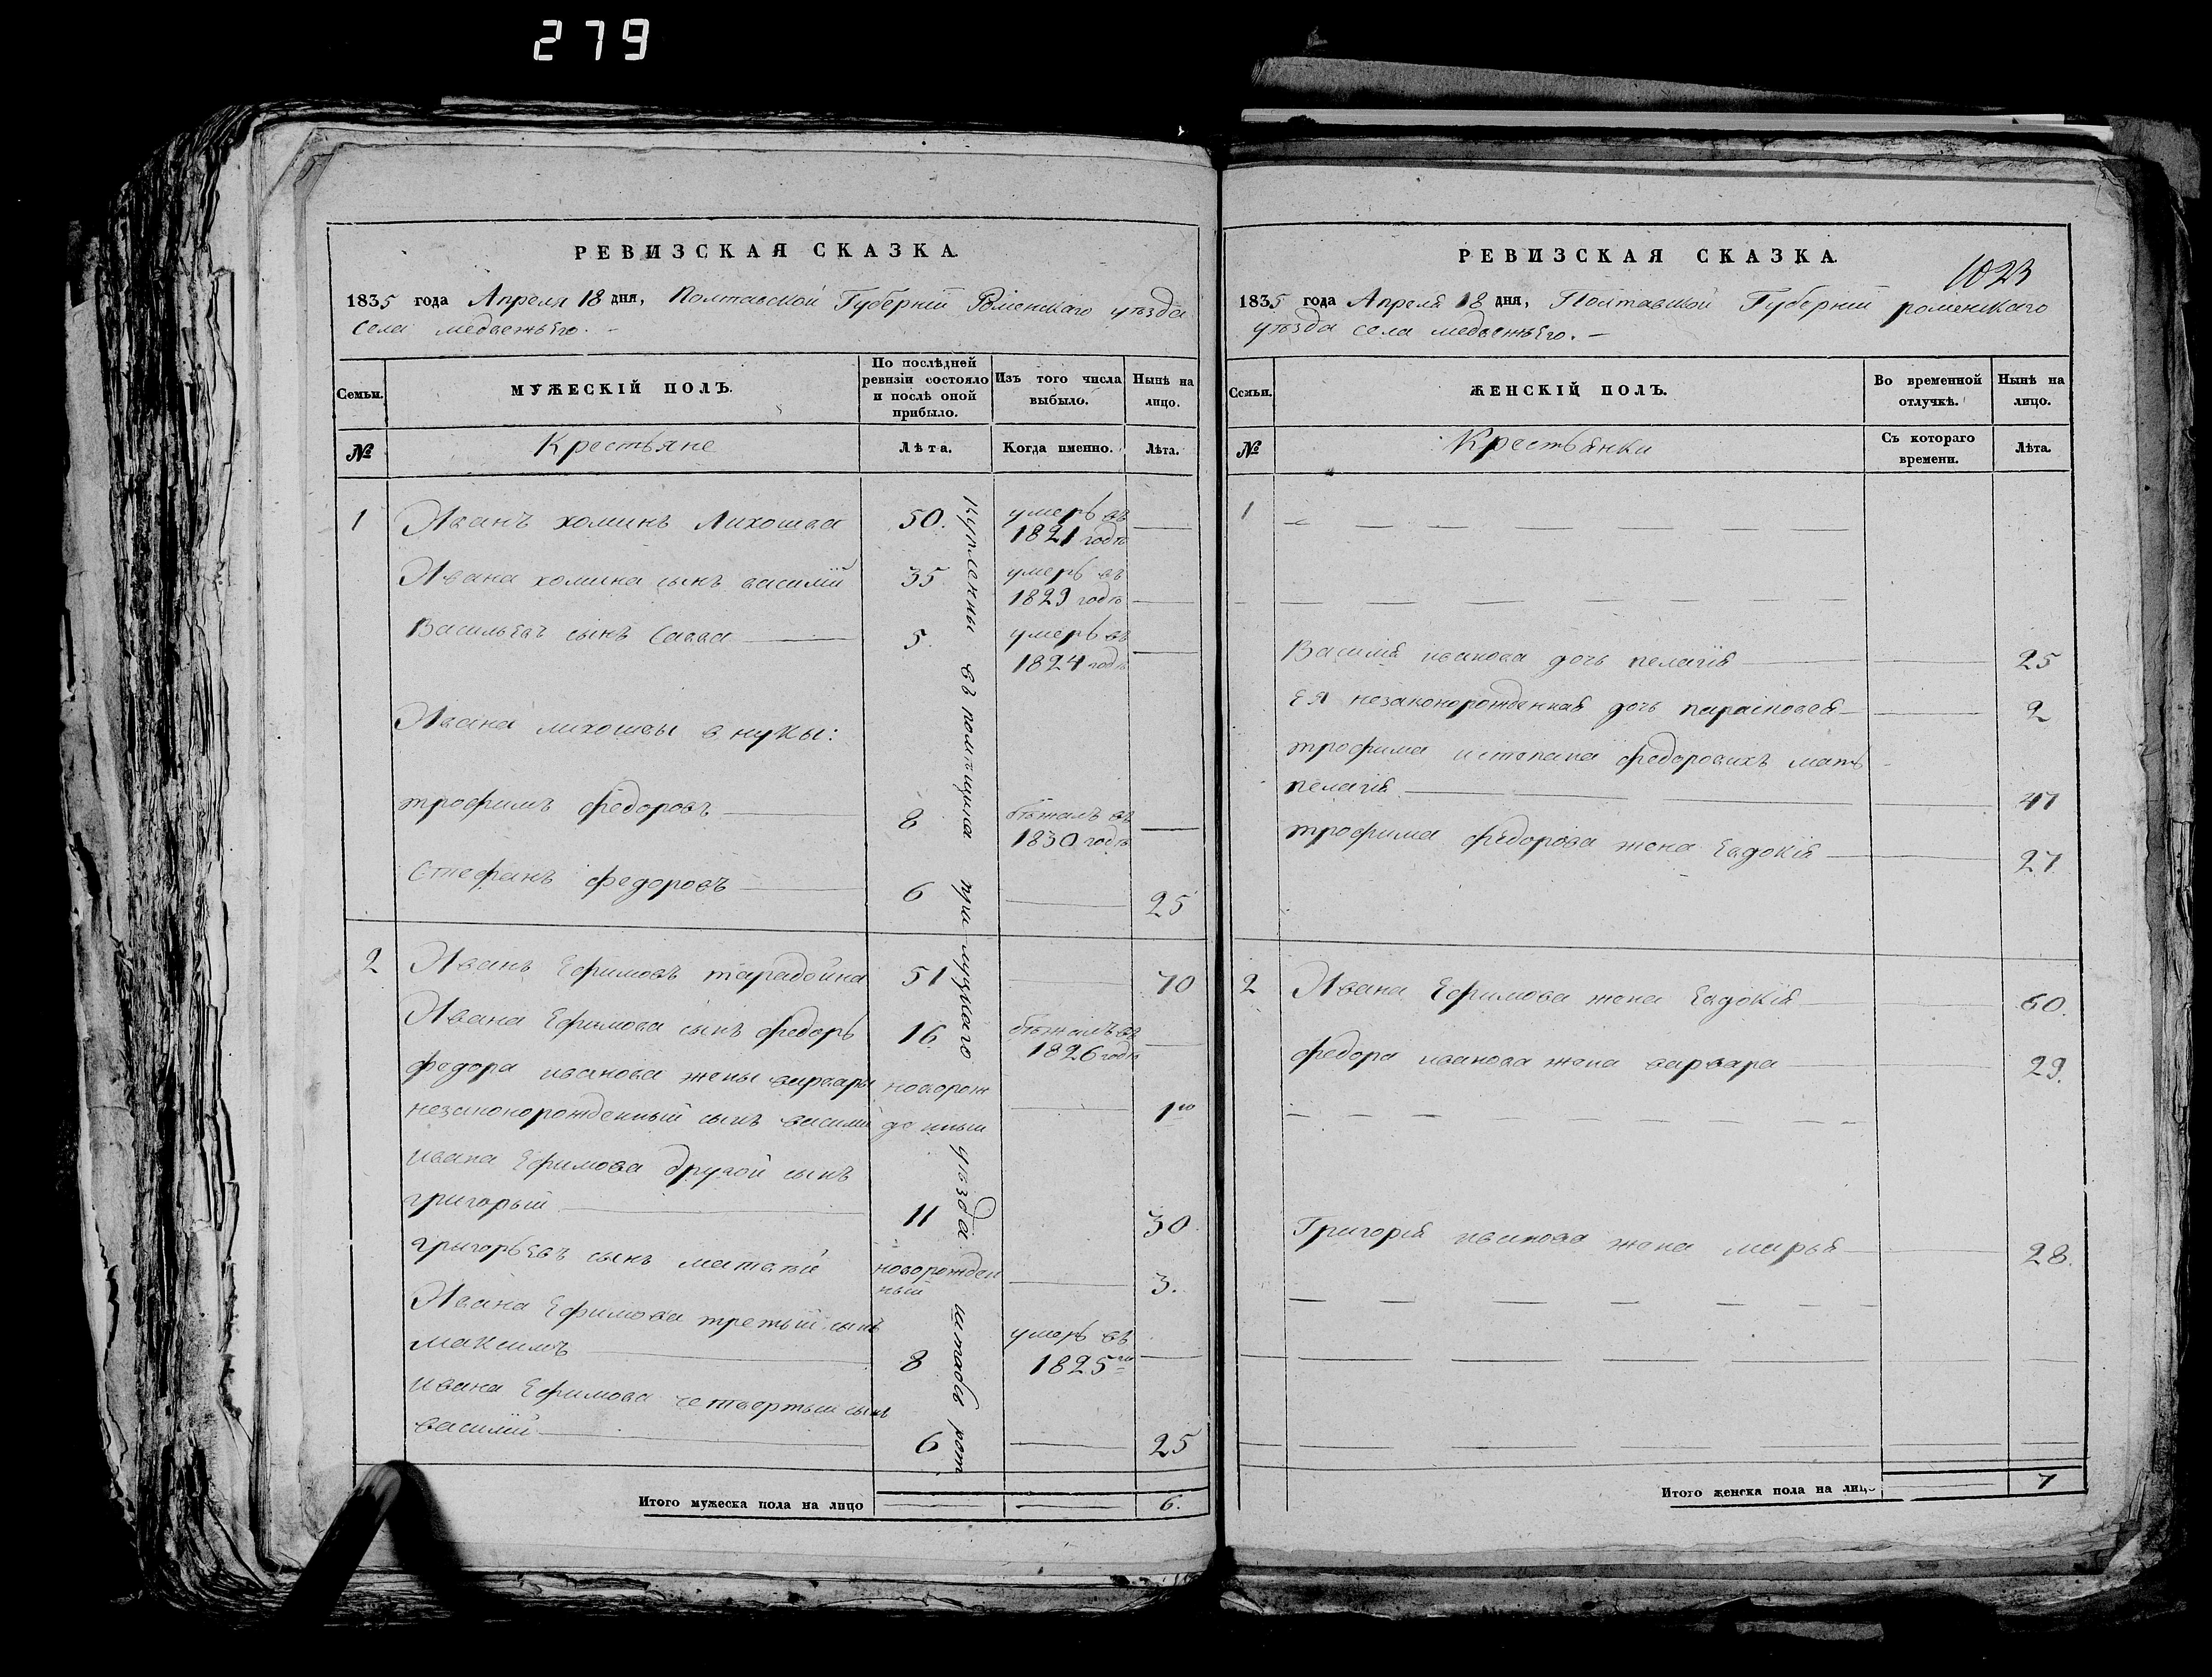 279
РЕВИЗСКАЯ СКАЗКА.
1835 года Апреля 18 дня, Полтавской Губернїи Роменскаго уѣзда
села медвежъЕго.
Семьи.
МУЖЕСКІЙ ПОЛЪ.
По послѣдней ревизіи состояло и послѣ оной прибыло.
Изъ того числа выбыло.
Нынѣ на лицо.
№
Крестьяне
Лѣта.
Когда именно.
Лѣта.
1 Иванъ хоминъ Лихошва 50. умеръ въ 1821 годѣ
Ивана хомина сынъ василїй 35 умеръ въ 1829 годѣ
ВасильЕвъ сынъ Савва 5. умеръ въ 1824 годѣ
Ивана лихошвы внуки:
трофимъ федоровъ 8 бѣжалъ въ 1830 годѣ
Стефанъ федоровъ 6 25
2 Иванъ Ефимовъ тарадойна 51 70
Ивана Ефимова сынъ федоръ 16 бѣжалъ въ 1826 годѣ
федора иванова жены варвары новорож
незаконорожденный сынъ василїй денный 1го
ивана Ефимова другой сынъ
григорый 11 30.
григорьЕвъ сынъ матвѣй новорожден ный 3.
Ивана Ефимова третый сынъ
максимъ 8 умеръ въ 1825го
ивана Ефимова четвертый сынъ
василїй 6 25
купленны въ помѣщика при луцкаго уѣзда штабъ рот
Итого мужеска пола на лицо 6.
РЕВИЗСКАЯ СКАЗКА.
1023
1835 года Апреля 18 дня, Полтавской Губернїи роменскаго
уѣзда села медвежъЕго.
Семьи.
ЖЕНСКІЙ ПОЛЪ.
Во временной отлучкѣ.
Нынѣ на лицо.
№
Крестьянки
Съ котораго времени.
Лѣта.
1
Василїя иванова дочь пелагїя 25
Ея незаконорожденная дочь парасковея 2
трофима и степана федоровихъ мать
пелагїя 47
трофима федорова жена Евдокїя 27
2 Ивана Ефимова жена Евдокїя 60.
федора иванова жена варвара 29.
Григорїя иванова жена марья 28.
Итого женска пола на лицо 7